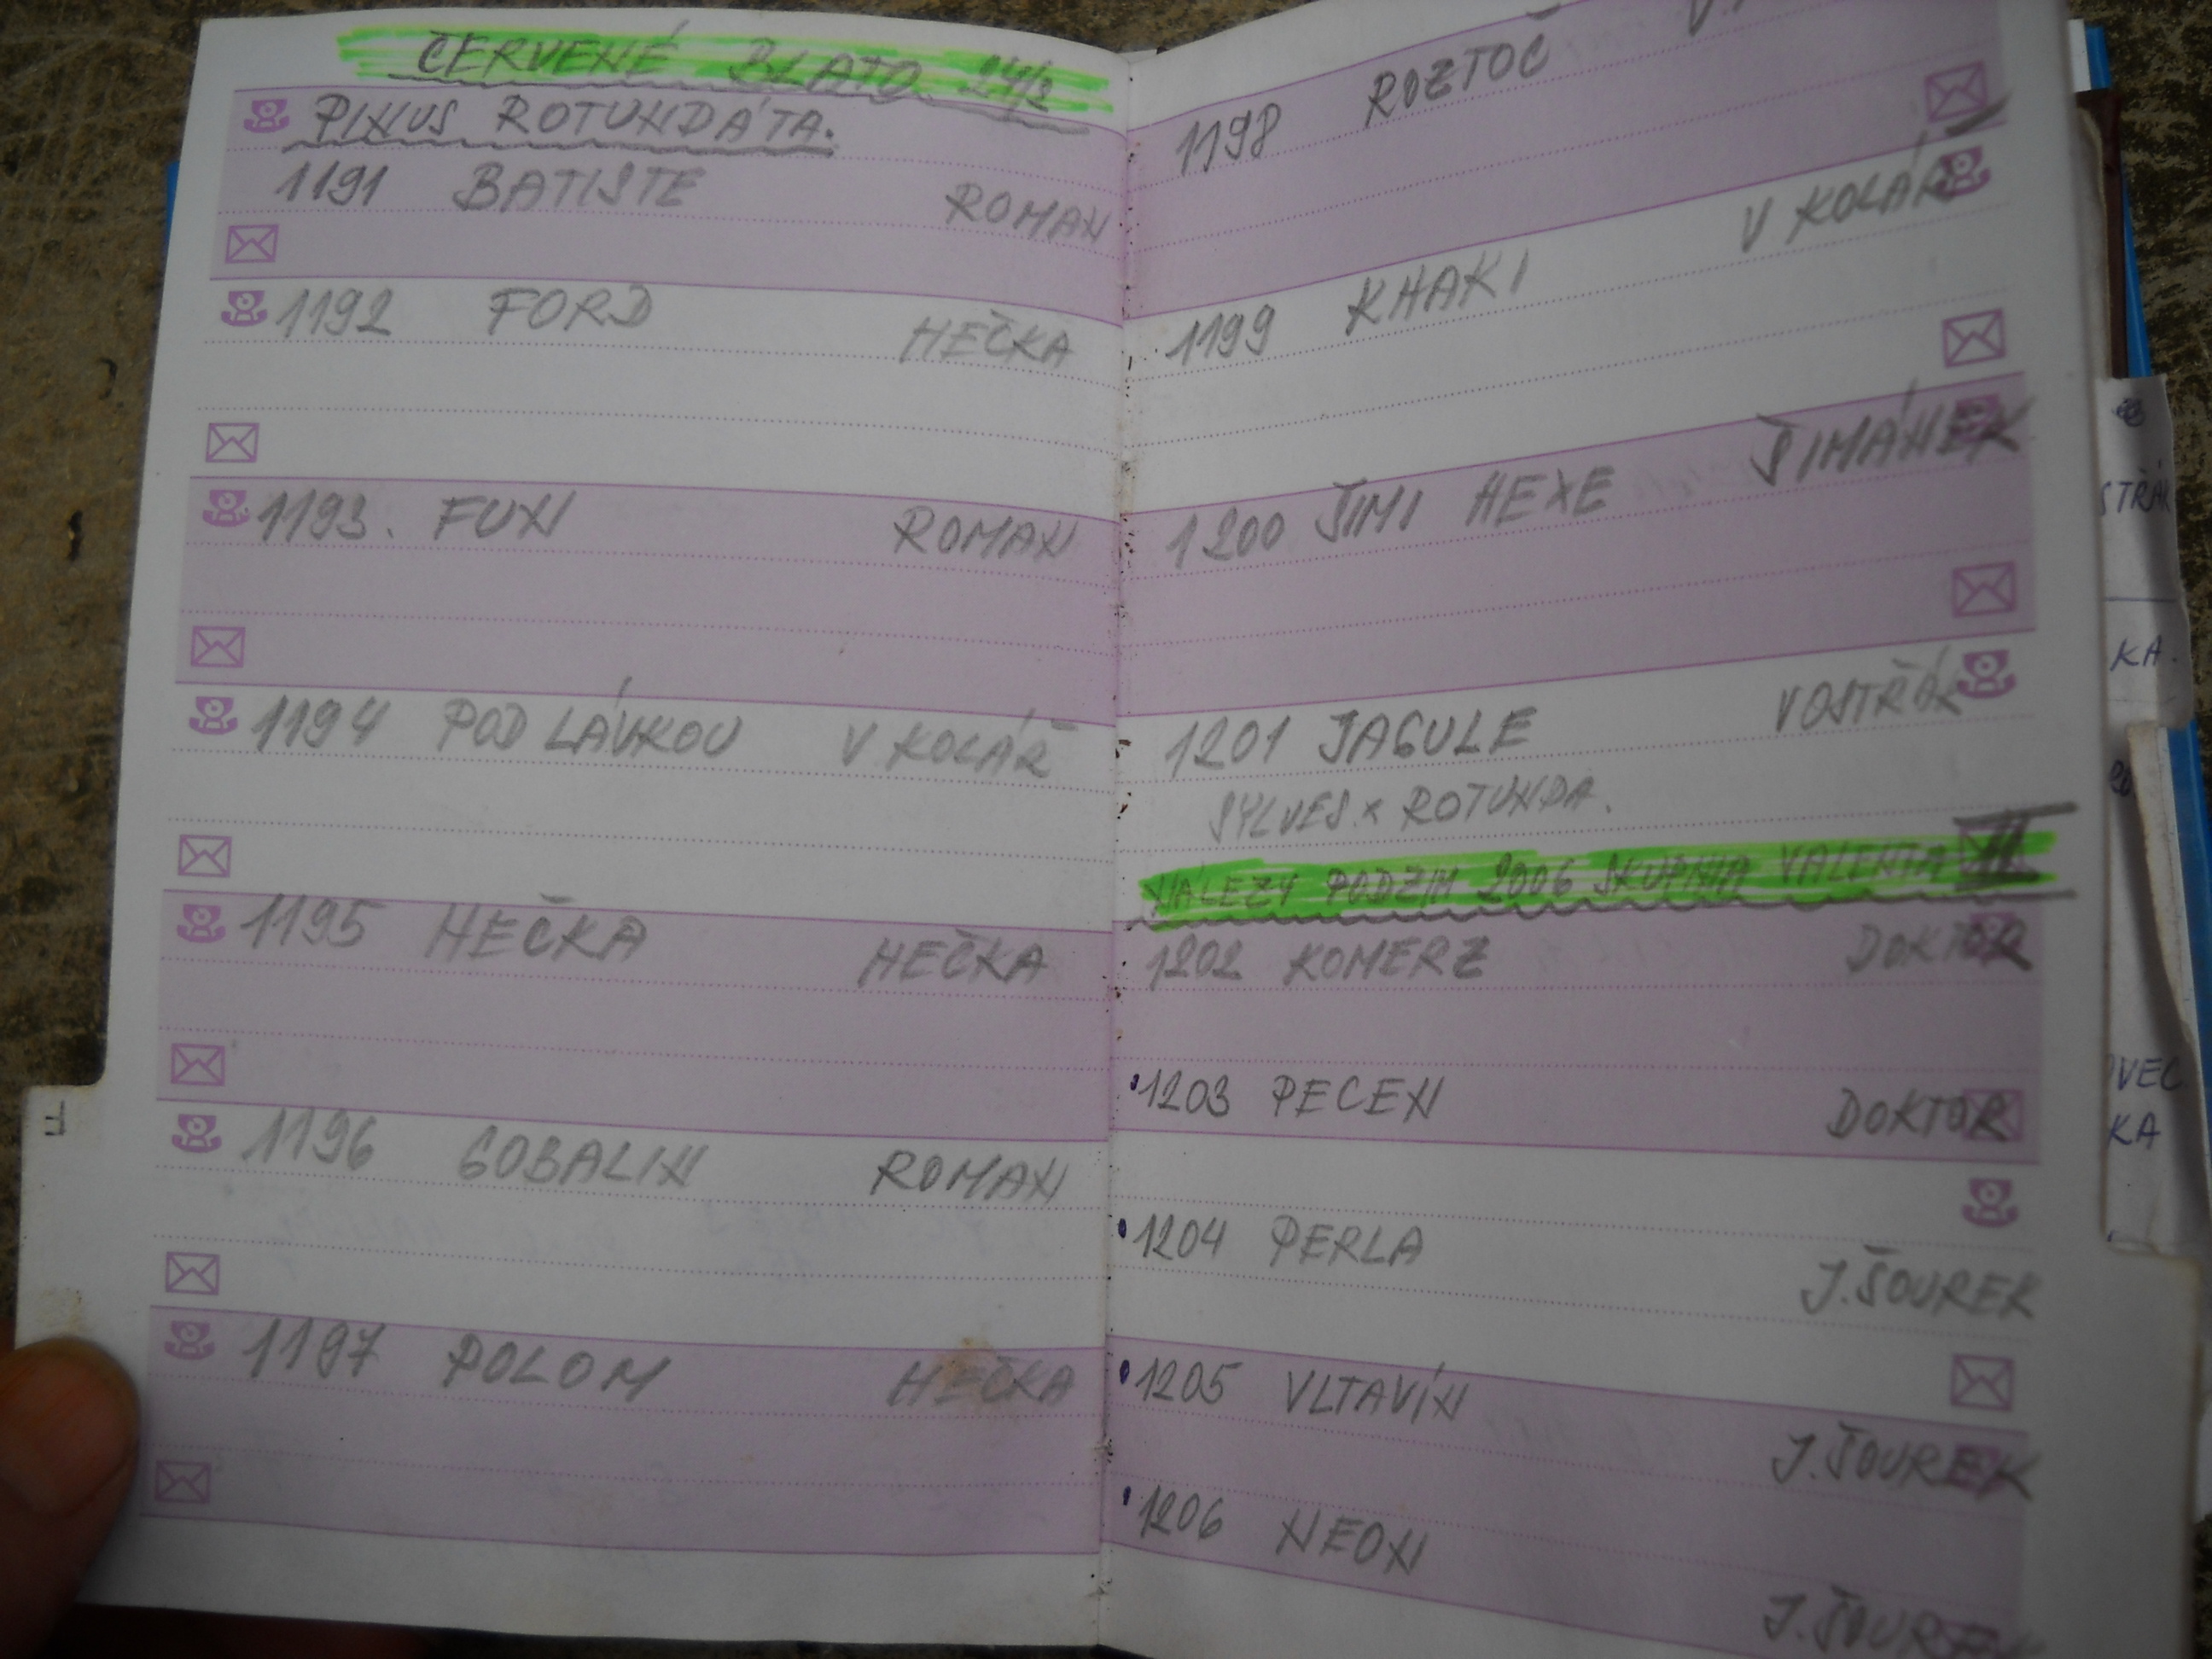 ČERVENÉ BLATO 24/2
PINUS ROTUNDÁTA.
1191 BATISTE ROMAN
1192 FORD HEČKA
1193. FUN ROMAN
1194 POD LÁVKOU V KOLÁŘ
1195 HEČKA HEČKA
1196 GOBALIN ROMAN
1197 POLOM HEČKA
1198 ROZTOČ
1199 KHAKI V KOLÁŘ
1200 JIMI HEXE ŠIMÁNEK
1201 JAGULE VOSTŘÁK
SYLVES. x ROTUNDA.
NÁLEZY PODZIM 2006 SKUPINA VALENTA
1202 KOMERZ DOKTOR
1203 PECEN DOKTOR
1204 PERLA J. ŠOUREK
1205 VLTAVÍN J. ŠOUREK
1206 NEON J. ŠOUREK
F
KA.
VEC
KA